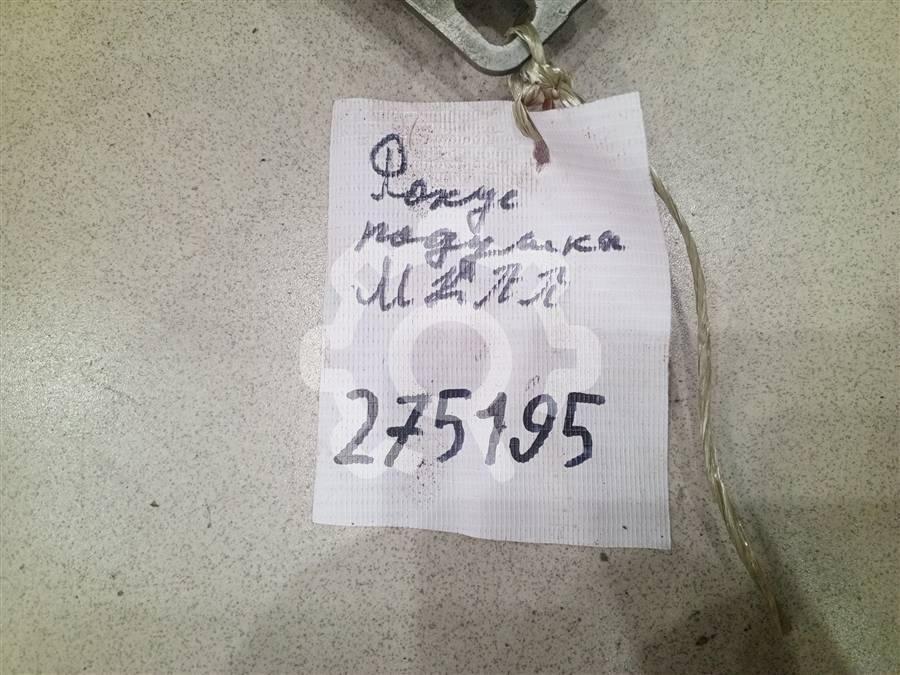 Фокус
подушка
МКПП
275195